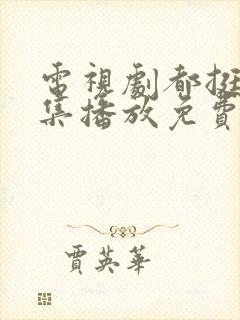 電視劇都挺
集播放免費
賈英華